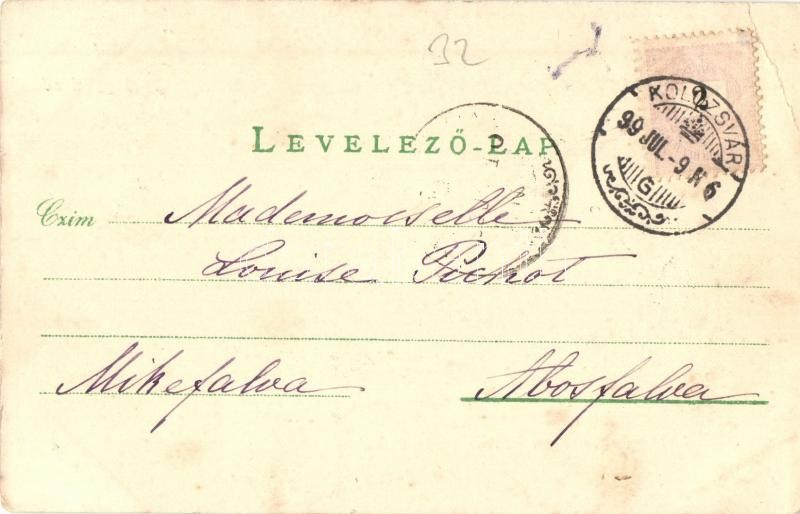 32
LEVELEZŐ-LAP
KOLOZSVÁR
99 JUL.-9 N 6
G
Czim Mademoiselle
Louise Pichot
Mikefalva Abosfalva